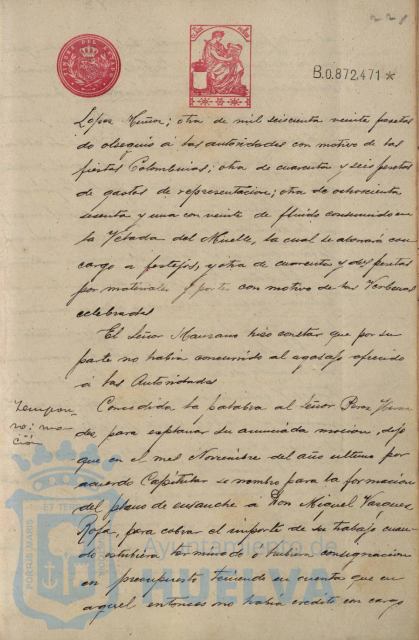 228
B.0.872.471 *
Lopez Muñoz; otra de mil seiscientas veinte pesetas
de obsequio á las autoridades con motivo de las
fiestas Colombinas; otra de cuarenta y seis pesetas
de gastos de representacion; otra de ochocientas
sesenta y una con veinte de fluido consumido en
la Velada del Muelle, la cual se abonará con
cargo a festejos, y otra de cuarenta y dos pesetas
por materiales y portes con motivo de las Verbenas
celebradas
El Señor Manzano hizo constar que por su
parte no habia concurrido al agasajo ofrecido
á las Autoridades
Concedida la palabra al Señor Perez
para explanar su anunciada mocion, dijo
que en el mes Noviembre del año ultimo por
acuerdo Capitular se nombro para la formacion
del plano de ensanche á Don Miguel Vazquez
para cobrar el importe de su trabajo cuan
do estubiera terminado y hubiera consignacion
en presupuesto teniendo en cuenta que en
aquel entonces no habia credito con cargo
PORTUS MARIS
ET TERRAE
Ayuntamiento de
HUELVA